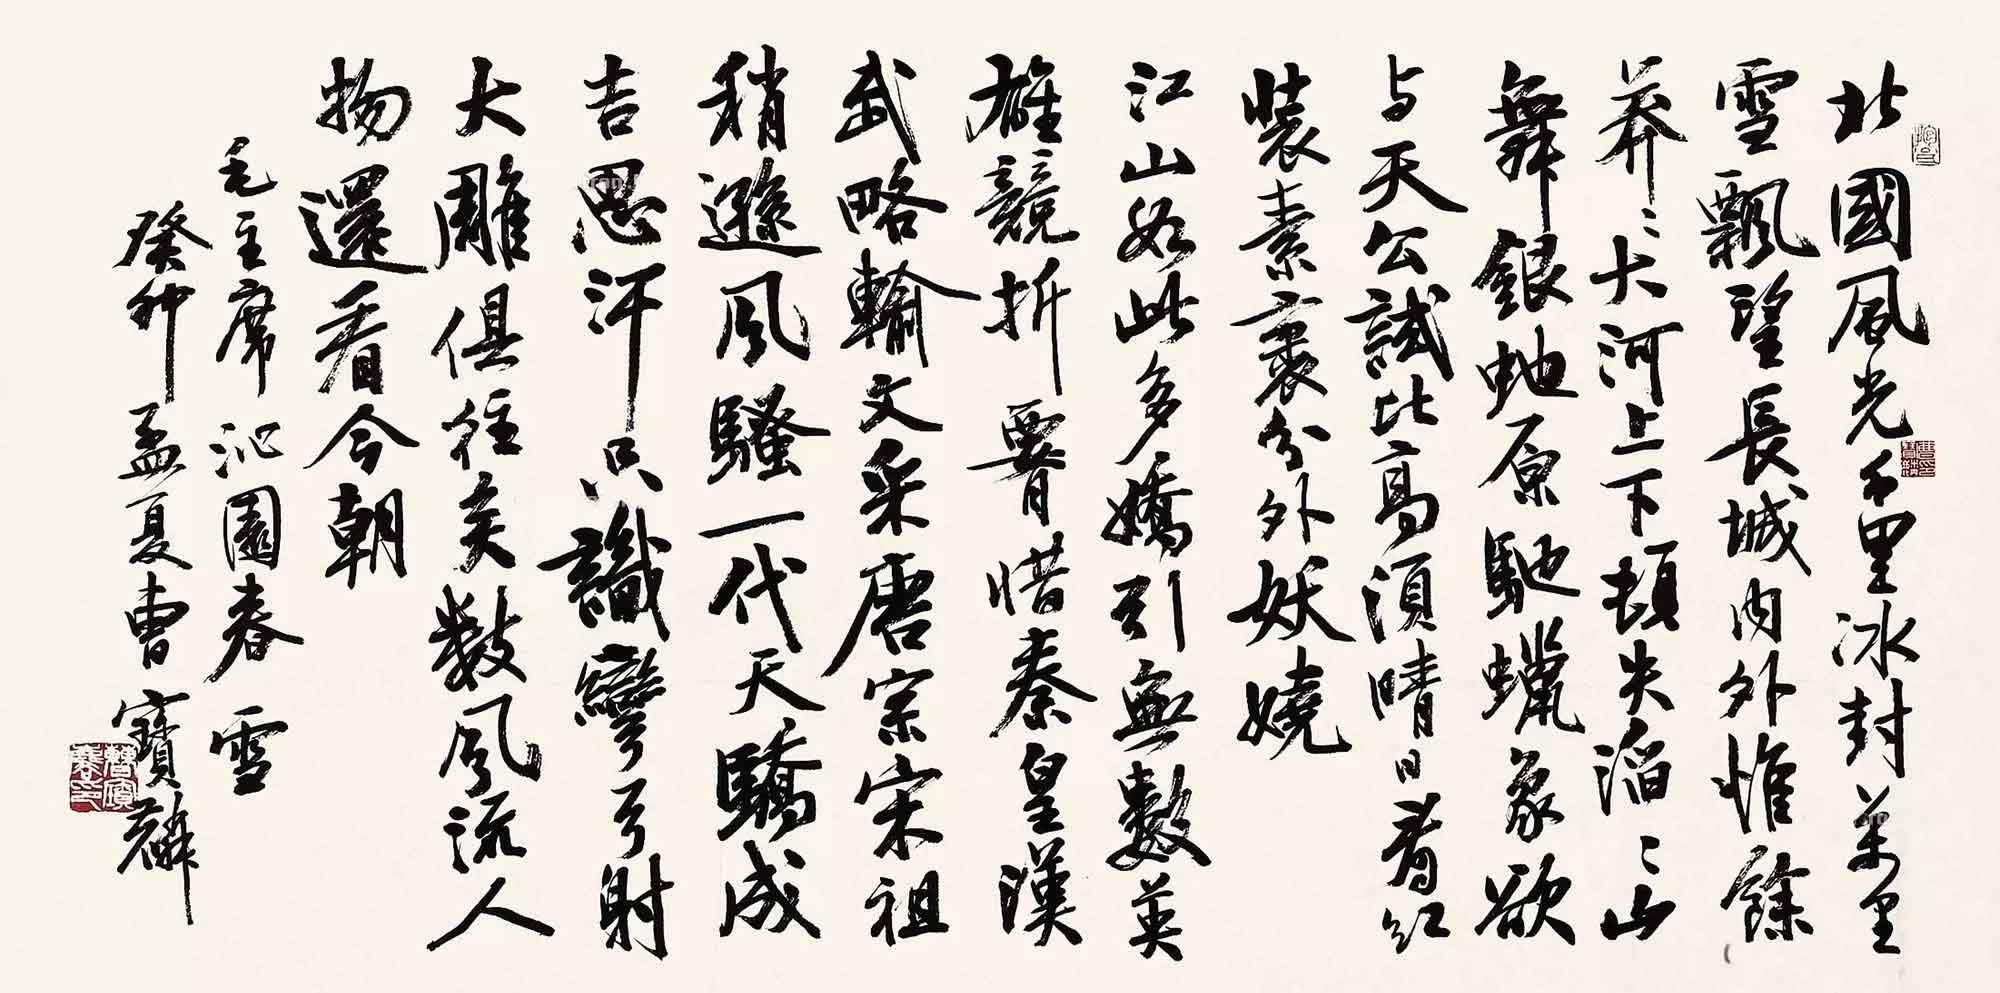 北國風光千里冰封萬里
雪飄望長城内外惟餘
莽〻大河上下頓失滔〻山
舞銀虵原馳蠟象欲
与天公試比高須晴日看紅
裝素裹分外妖嬈
江山如此多嬌引無數英
雄競折腰惜秦皇漢
武略輸文采唐宗宋祖
稍遜風騷一代天驕成
吉思汗只識彎弓射
大雕俱往矣數風流人
物還看今朝
毛主席沁園春雪
癸卯孟夏曹寶麟